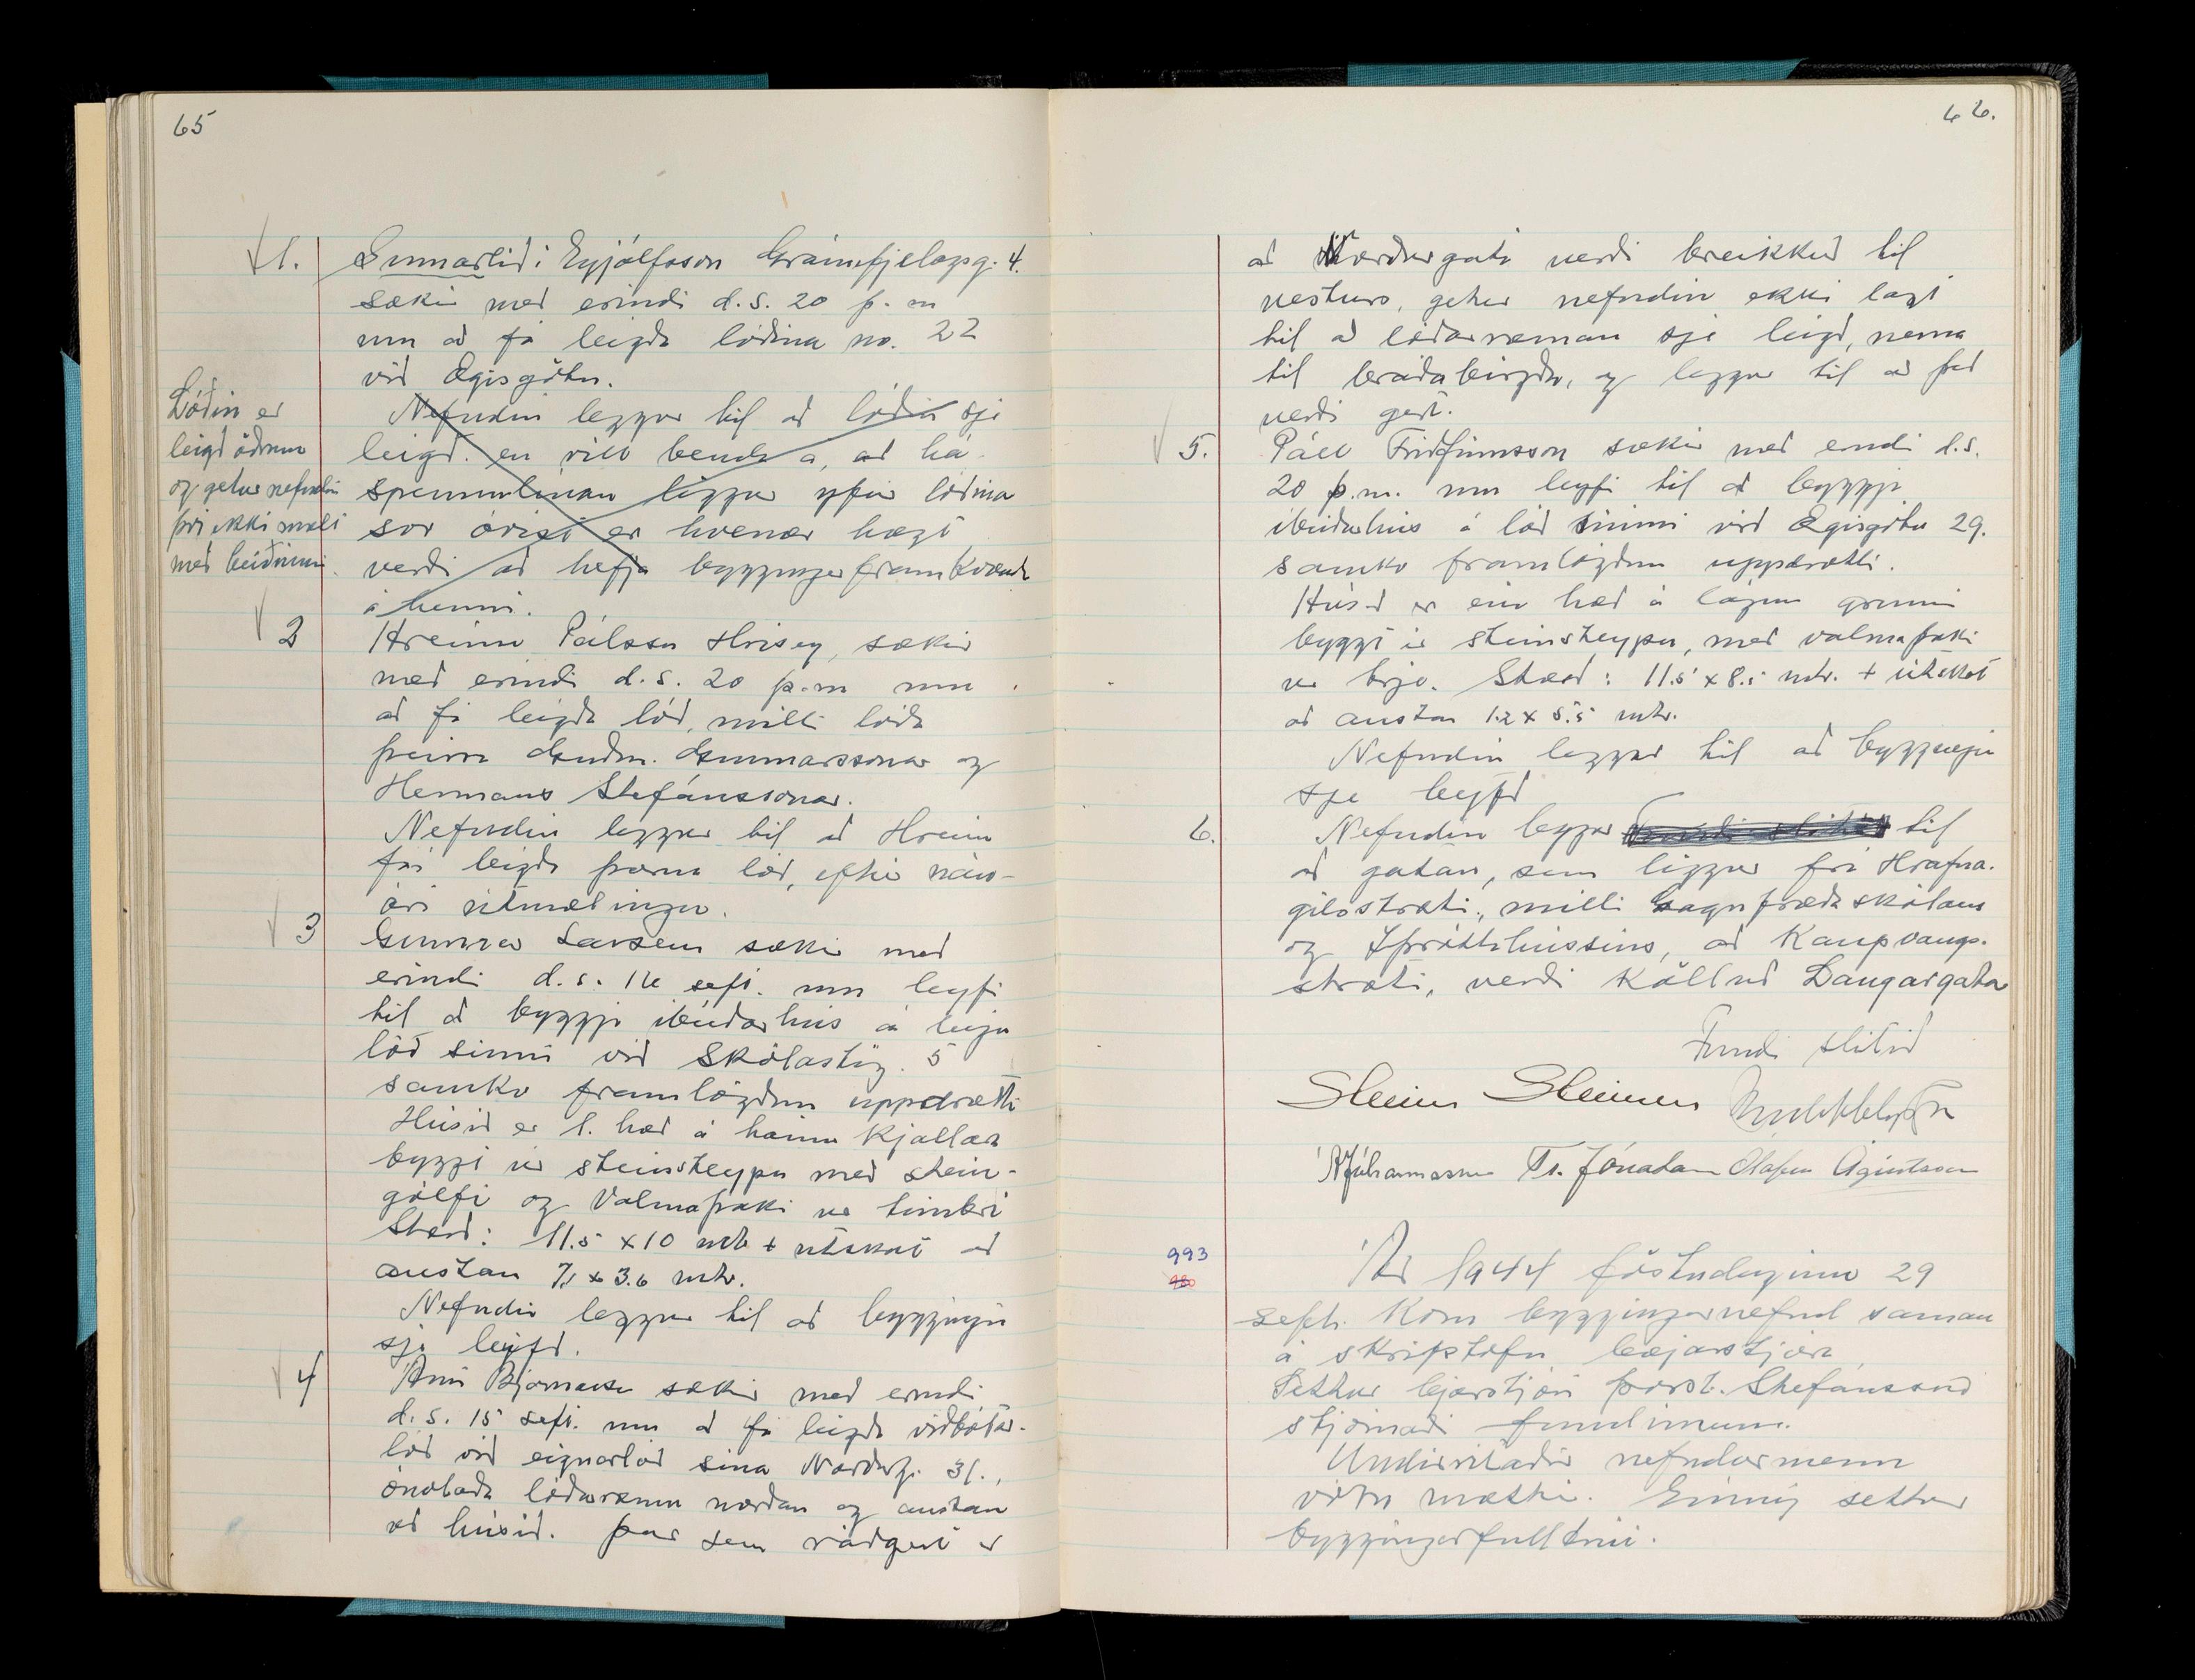 65
1. Sumarliði Eyjólfsson Gránufjelagsg. 4.
sækir með erindi d.s. 20 þ.m
um að fá leigða lóðina no. 22
við Ægisgötu.
Nefndin leggur til að lóðin sje
leigð. en vill benda á, að há-
spennulínan liggur yfir lóðina
svo óvist er hvenær hægt
verði að hefja byggingarframkvæmd
á henni.
Lóðin er
leigð öðrum
og getur nefndin
því ekki mælt
með beiðninni.
2 Hreinn Pálsson Hrisey, sækir
með erindi d.s. 20 þ.m um
að fá leigða lóð, milli lóða
þeirra Guðm. Gunnarssonar og
Hermans Stefánssonar.
Nefndin leggur til að Hreinn
fái leigða þarna lóð, eftir nán-
ari útmælingu.
3 Gunnar Larsen sækir með
erindi d.s. 16 sept. um leyfi
til að byggja ibúðarhús á leigu
lóð sinni við Skólastíg. 5
samkv framlögðum uppdrætti
Húsið er 1. hæð á háum kjallara
byggt úr steinsteypu með stein-
gólfi og Valmaþaki úr timbri
Stærð: 11.5 x 10 mtr + útskot að
austan 7.1 x 3.6 mtr.
Nefndin leggur til að byggingin
sje leyfð.
4 Árni Bjarnarson sækir með erindi
d.s. 15 sept. um að fá leigða viðbótar-
lóð við eignarlóð sina Norðurg. 31.,
lóðarræmu norðan og austan
að húsið. þar sem ráðgert er
66.
að Norðurgata verði breikkuð til
vesturs, getur nefndin ekki lagt
til að lóðarræman sje leigð, nema
til bráðabirgða, og leggur til að það
verði gert.
5. Páll Friðfinnsson sækir með erindi d.s.
20 þ.m. um leyfi til að byggja
ibúðarhús á lóð sinni við Ægisgötu 29.
samkv framlögðum uppdrætti.
Húsið er ein hæð á lágum grunni
byggt úr steinsteypu, með valmaþaki
úr Stærð: 11.5 x 8.5 mtr. + útskot
að austan 1.2 x 5.5 mtr.
Nefndin leggur til að byggingin
sje leyfð
6. Nefndin leggur til
að gatan, sem liggur frá Hrafna-
gilsstræti, milli Gagnfræðaskólans
og Íþróttahússins, að Kaupvangs-
stræti, verði kölluð Laugargata
Fundi slitið
Steinn Steinsen
Tr. Jónatan Ólafur Ágústsson
993
980
Ár 1944 föstudaginn 29
sept. kom byggingarnefnd saman
á skrifstofu bæjarstjóra
Settur bæjarstjóri þorst. Stefánsson
stjórnaði fundinum.
Undirritaðir nefndarmenn
voru mættir. Einnig settur
byggingarfulltrúi.